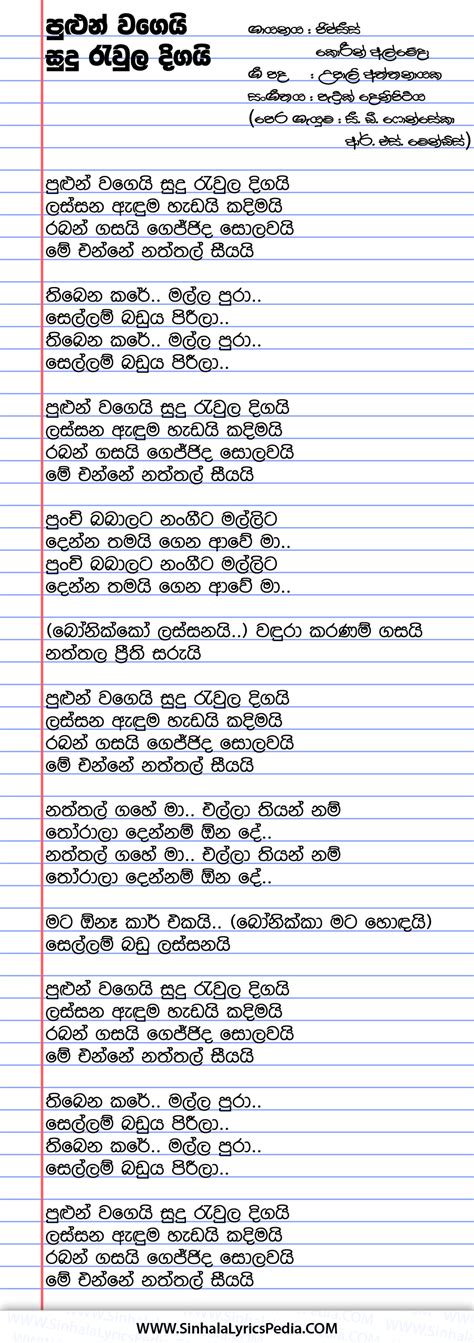 පුළුන් වගෙයි
සුදු රැවුල දිගයි
ගායනය : ජිප්සීස්
කොරීන් අල්මේදා
ගී පද : උපාලි අත්තනායක
සංගීතය : පැට්‍රික් දෙනිපිටිය
(පෙර ගැයුම : සී. ඩී. ෆොන්සේකා
ආර්. එස්. මෙන්ඩිස්)
පුළුන් වගෙයි සුදු රැවුල දිගයි
ලස්සන ඇඳුම හැඩයි කදිමයි
රබන් ගසයි ගෙජ්ජිද සොලවයි
මේ එන්නේ නත්තල් සීයයි
තිබෙන කරේ.. මල්ල පුරා..
සෙල්ලම් බඩුය පිරීලා..
තිබෙන කරේ.. මල්ල පුරා..
සෙල්ලම් බඩුය පිරීලා..
පුළුන් වගෙයි සුදු රැවුල දිගයි
ලස්සන ඇඳුම හැඩයි කදිමයි
රබන් ගසයි ගෙජ්ජිද සොලවයි
මේ එන්නේ නත්තල් සීයයි
පුංචි බබාලට නංගීට මල්ලිට
දෙන්න තමයි ගෙන ආවේ මා..
පුංචි බබාලට නංගීට මල්ලිට
දෙන්න තමයි ගෙන ආවේ මා..
(බෝනික්කෝ ලස්සනයි..) වඳුරා කරණම් ගසයි
නත්තල ප්‍රීති සරුයි
පුළුන් වගෙයි සුදු රැවුල දිගයි
ලස්සන ඇඳුම හැඩයි කදිමයි
රබන් ගසයි ගෙජ්ජිද සොලවයි
මේ එන්නේ නත්තල් සීයයි
නත්තල් ගහේ මා.. එල්ලා තියන් නම්
තෝරාලා දෙන්නම් ඕන දේ..
නත්තල් ගහේ මා.. එල්ලා තියන් නම්
තෝරාලා දෙන්නම් ඕන දේ..
මට ඕනෑ කාර් එකයි.. (බෝනික්කා මට හොඳයි)
සෙල්ලම් බඩු ලස්සනයි
පුළුන් වගෙයි සුදු රැවුල දිගයි
ලස්සන ඇඳුම හැඩයි කදිමයි
රබන් ගසයි ගෙජ්ජිද සොලවයි
මේ එන්නේ නත්තල් සීයයි
තිබෙන කරේ.. මල්ල පුරා..
සෙල්ලම් බඩුය පිරීලා..
තිබෙන කරේ.. මල්ල පුරා..
සෙල්ලම් බඩුය පිරීලා..
පුළුන් වගෙයි සුදු රැවුල දිගයි
ලස්සන ඇඳුම හැඩයි කදිමයි
රබන් ගසයි ගෙජ්ජිද සොලවයි
මේ එන්නේ නත්තල් සීයයි
WWW.SinhalaLyricsPedia.COM